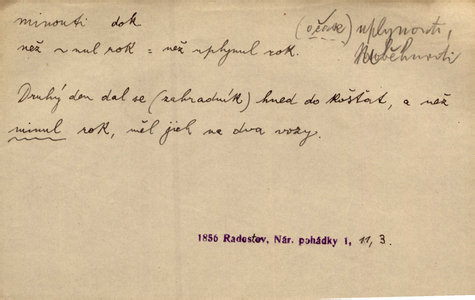 minouti dok (o čase) uplynouti,
než ~nul rok = než uplynul rok. proběhnouti
Druhý den dal se (zahradník) hned do košťat, a než
minul rok, měl jich na dva vozy.
1856 Radostov, Nár. pohádky 1, 11, 3.